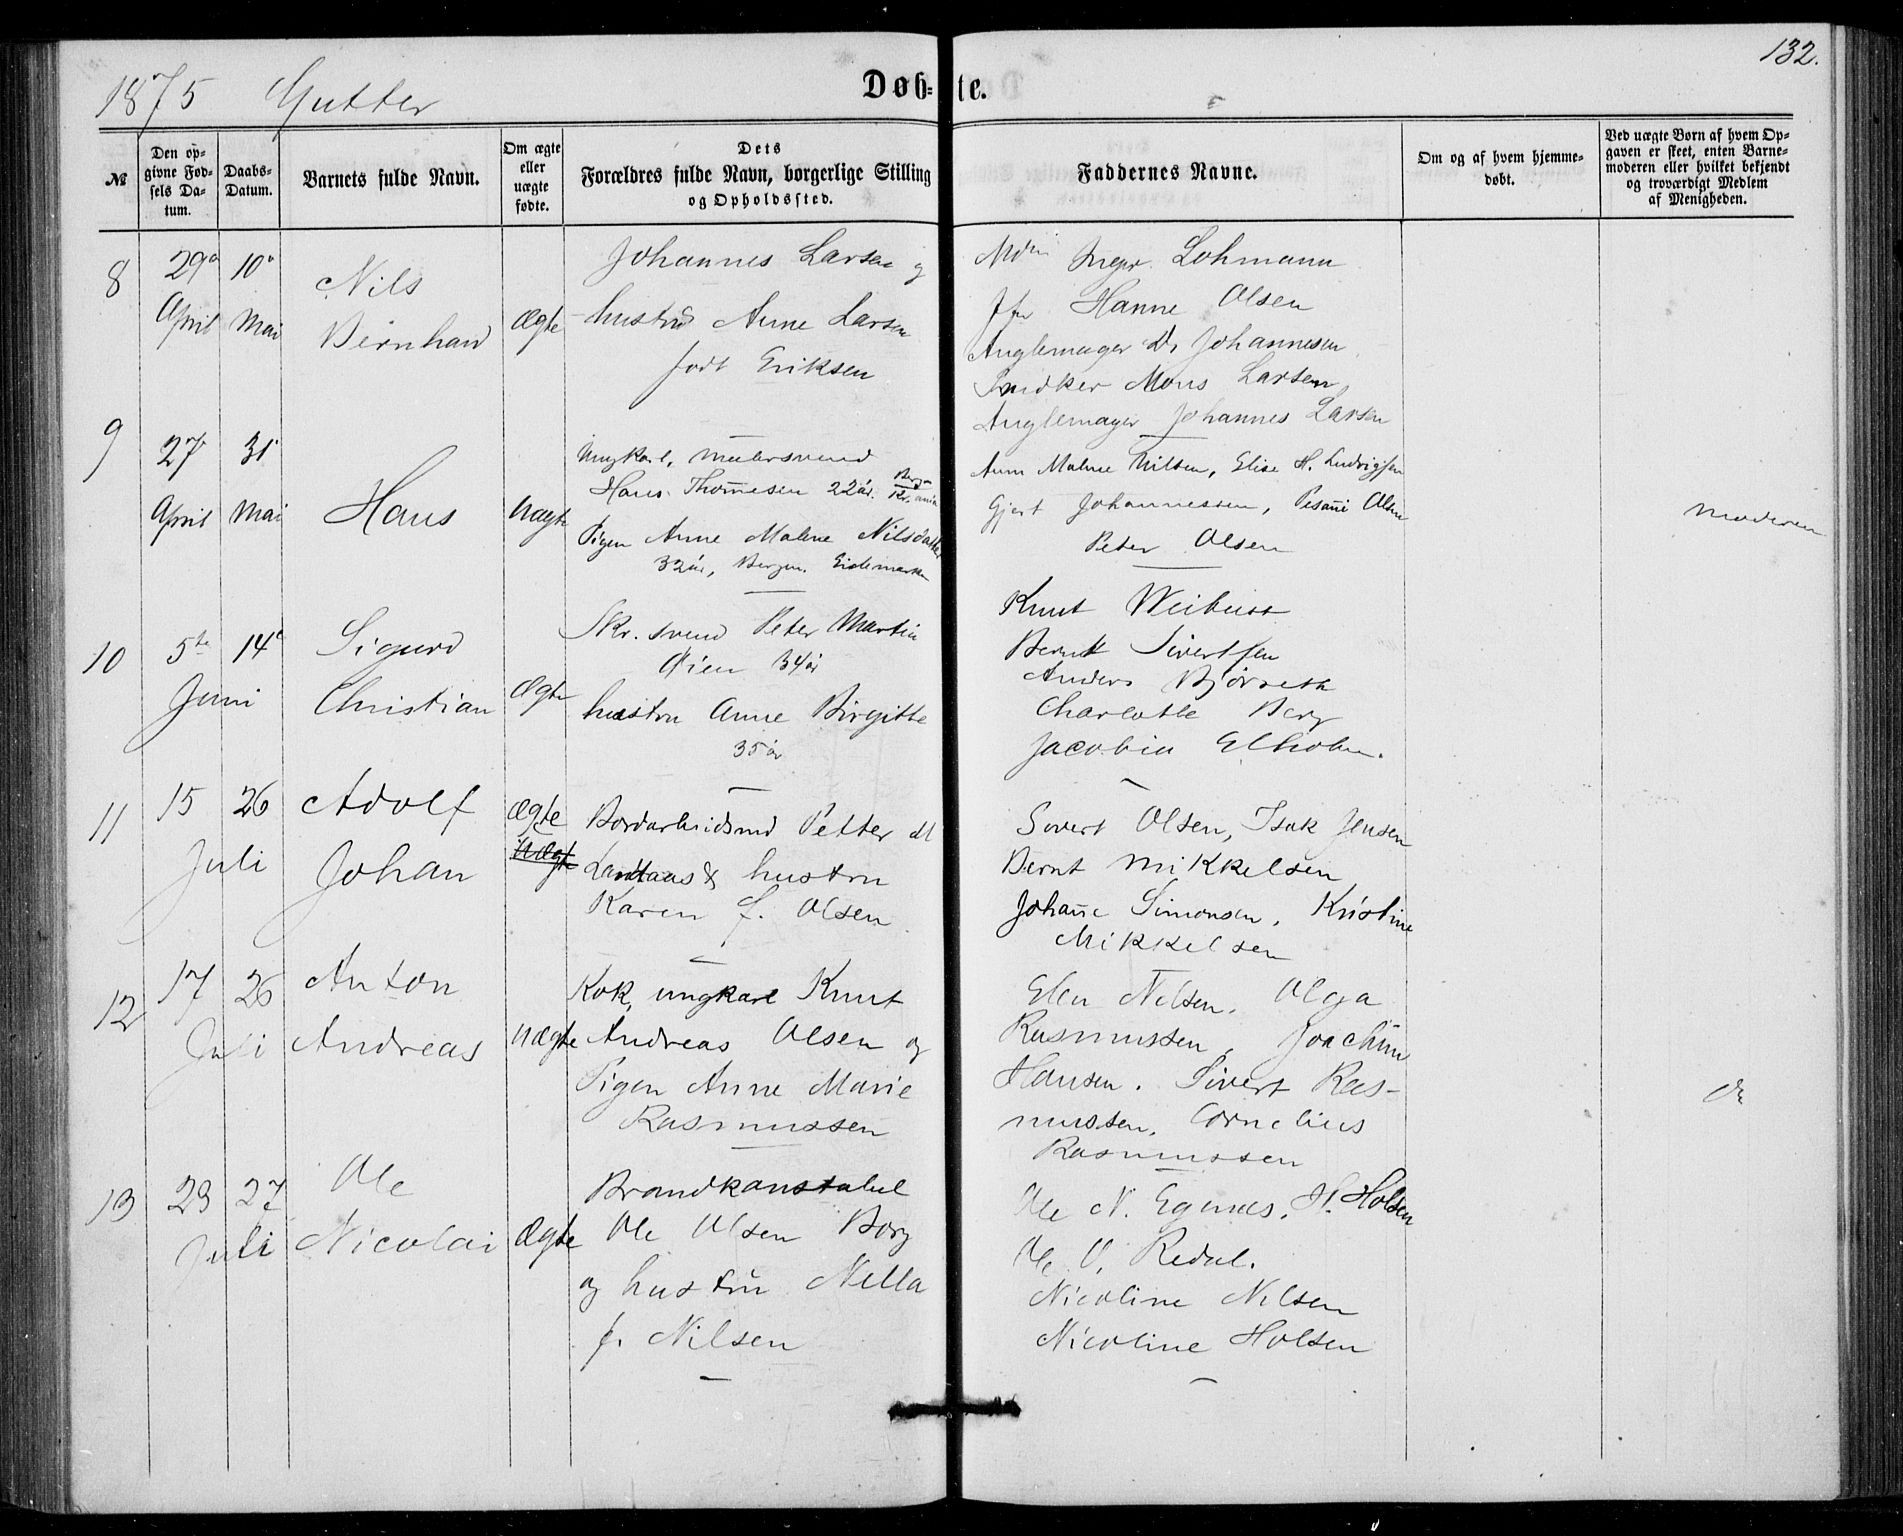 132.
1875 Gutter
Døb-te.
№
Den op-
givne Fød-
sels Da-
tum.
Daabs-
Datum.
Barnets fulde Navn.
Om ægte
eller
uægte
fødte.
Dets
Forældres fulde Navn, borgerlige Stilling
og Opholdssted.
Faddernes Navne.
Om og af hvem hjemme-
døbt.
Ved uægte Børn af hvem Op-
gaven er skeet, enten Barne-
moderen eller hvilket bekjendt
og troværdigt Medlem
af Menigheden.
8
29
April
10
Mai
Nils
Bernhard
Ægte
Johannes Larsen og
hustru Anne Larsen
født Eriksen
Lohmann
Jfr Hanne Olsen
Anglemager D. Johannesen
Snidker Mons Larsen,
Anglemager Johannes Larsen
9
27
April
31
Mai
Hans
Uægte
Ungkarl, malersvend
Hans Thomesen 22 år.
Pigen Anne Malene Nilsdatter
32 år, Bergen.
Anne Malene Nilsen, Elise H. Ludvigsen
Gjert Johannessen, Olsen
Peter Olsen
Moderen
10
5te
Juni
14
Sigurd
Christian
Ægte
Skr. svend Peter Martin
Øien 34 år
hustru Anne Birgitte
35 år
Knut
Bernt Sivertsen
Anders Bjørseth
Charlotte Berg
Jacobia
11
15
Juli
26
Adolf
Johan
Ægte
Uægte
Petter M
Landaas & hustru
Karen f. Olsen
Sivert Olsen, Isak Jensen
Bernt Mikkelsen
Johanne Simonsen, Kristine
Mikkelsen
12
17
Juli
26
Anton
Andreas
Uægte
Kok, ungkarl Knut
Andreas Olsen og
Pigen Anne Marie
Rasmussen
Elen Nilsen, Olga
Rasmussen, Joachim
Hansen. Sivert Ras-
mussen, Cornelius
Rasmussen
do
13
23
Juli
27
Ole
Nicolai
Ægte
Brandkonstabel
Ole Olsen Borg
og hustru Nella
f. Nilsen
Ole N. H. Holsen
Ole O. Redal.
Nicoline Nilsen
Nicoline Holsen